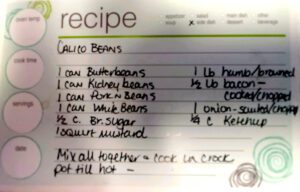 recipe
appetizer
soup
x salad
side dish
main dish
dessert
other
beverage
oven temp
cook time
servings
date
CALICO BEANS
1 CAN Butterbeans
1 CAN Kidney beans
1 CAN Pork n Beans
1 CAN White Beans
1/2 C. Br. sugar
1 squirt mustard
1 lb humb/browned
1/2 lb bacon-
cooked/chopped
1 onion-sauted/chopped
1/4 C Ketchup
Mix all together - cook in crock
pot till hot -